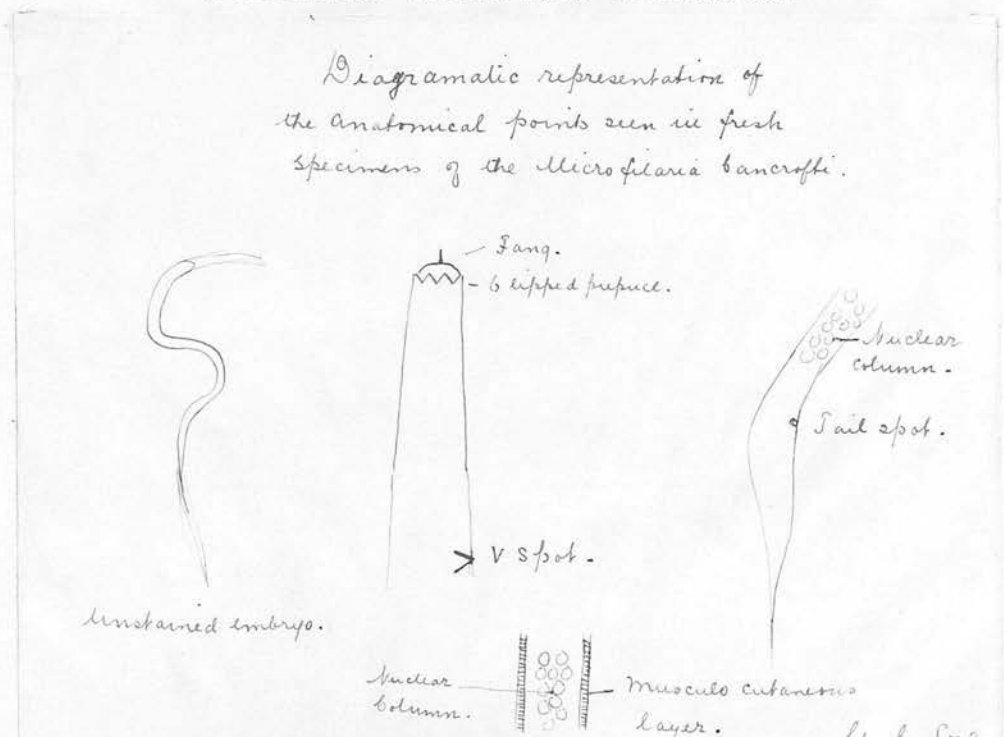 Diagramatic representation of
the anatomical points seen in fresh
specimens of the Microfilaria bancrofti.
Fang.
6 lipped prepuce.
Nuclear
column.
Tail spot.
V Spot.
Unstained embryo.
Nuclear
Column.
Musculo cutaneous
layer.